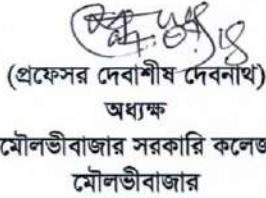 (প্রফেসর দেবাশীষ দেবনাথ)
অধ্যক্ষ
মৌলভীবাজার সরকারি কলেজ
মৌলভীবাজার